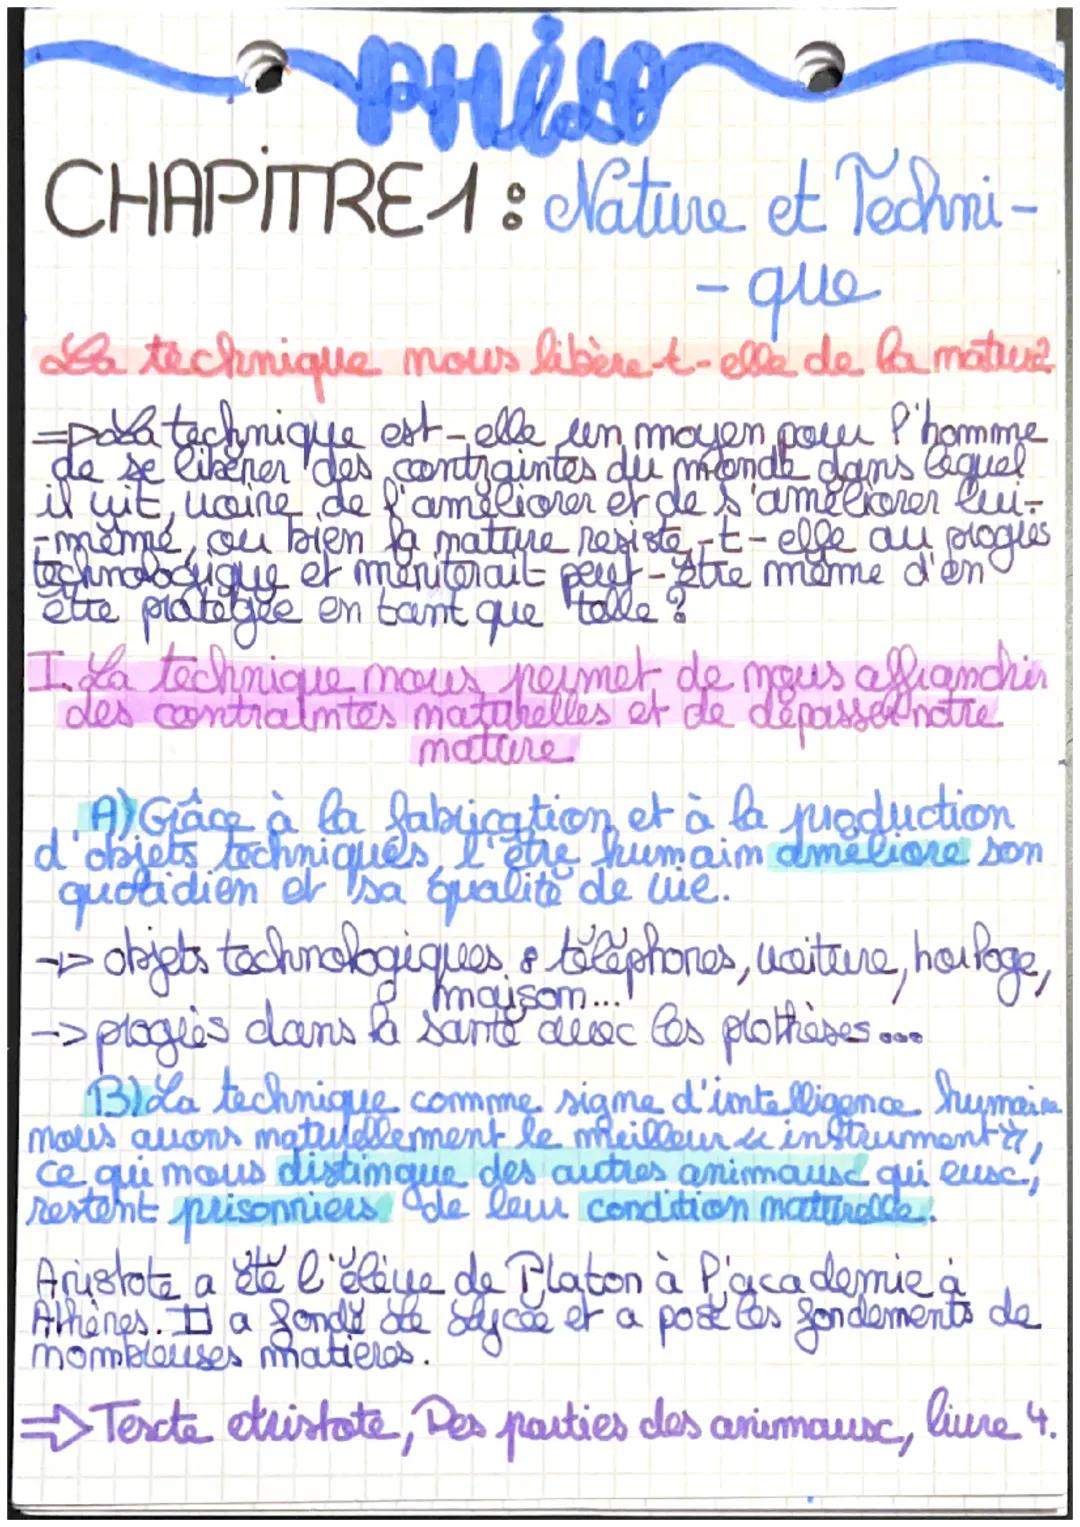 PHilSO
CHAPITRE 1 : Nature et Techni-
-que
La technique nous libère-t-elle de la nature?
=> La technique est-elle un moyen pour l'homme
de se libérer des contraintes du monde dans lequel
il vit, voire de l'améliorer et de s'améliorer lui-
-même, ou bien la nature resiste-t-elle au progrès
technologique et mériterait peut-être même d'en
être protégée en tant que telle ?
I. La technique nous permet de nous affranchir
des contraintes naturelles et de dépasser notre
nature
A) Grâce à la fabrication et à la production
d'objets techniques, l'être humain améliore son
quotidien et sa qualité de vie.
-> objets technologiques : téléphones, voiture, horloge,
maison...
-> progrès dans la santé avec les prothèses ...
B) La technique comme signe d'intelligence humaine
nous avons naturellement le meilleur « instrument »,
ce qui nous distingue des autres animaux qui eux,
restent prisonniers de leur condition naturelle.
Aristote a été l'élève de Platon à l'académie à
Athènes. Il a fondé le lycée et a posé les fondements de
nombreuses matières.
=> Texte Aristote, Des parties des animaux, livre 4.